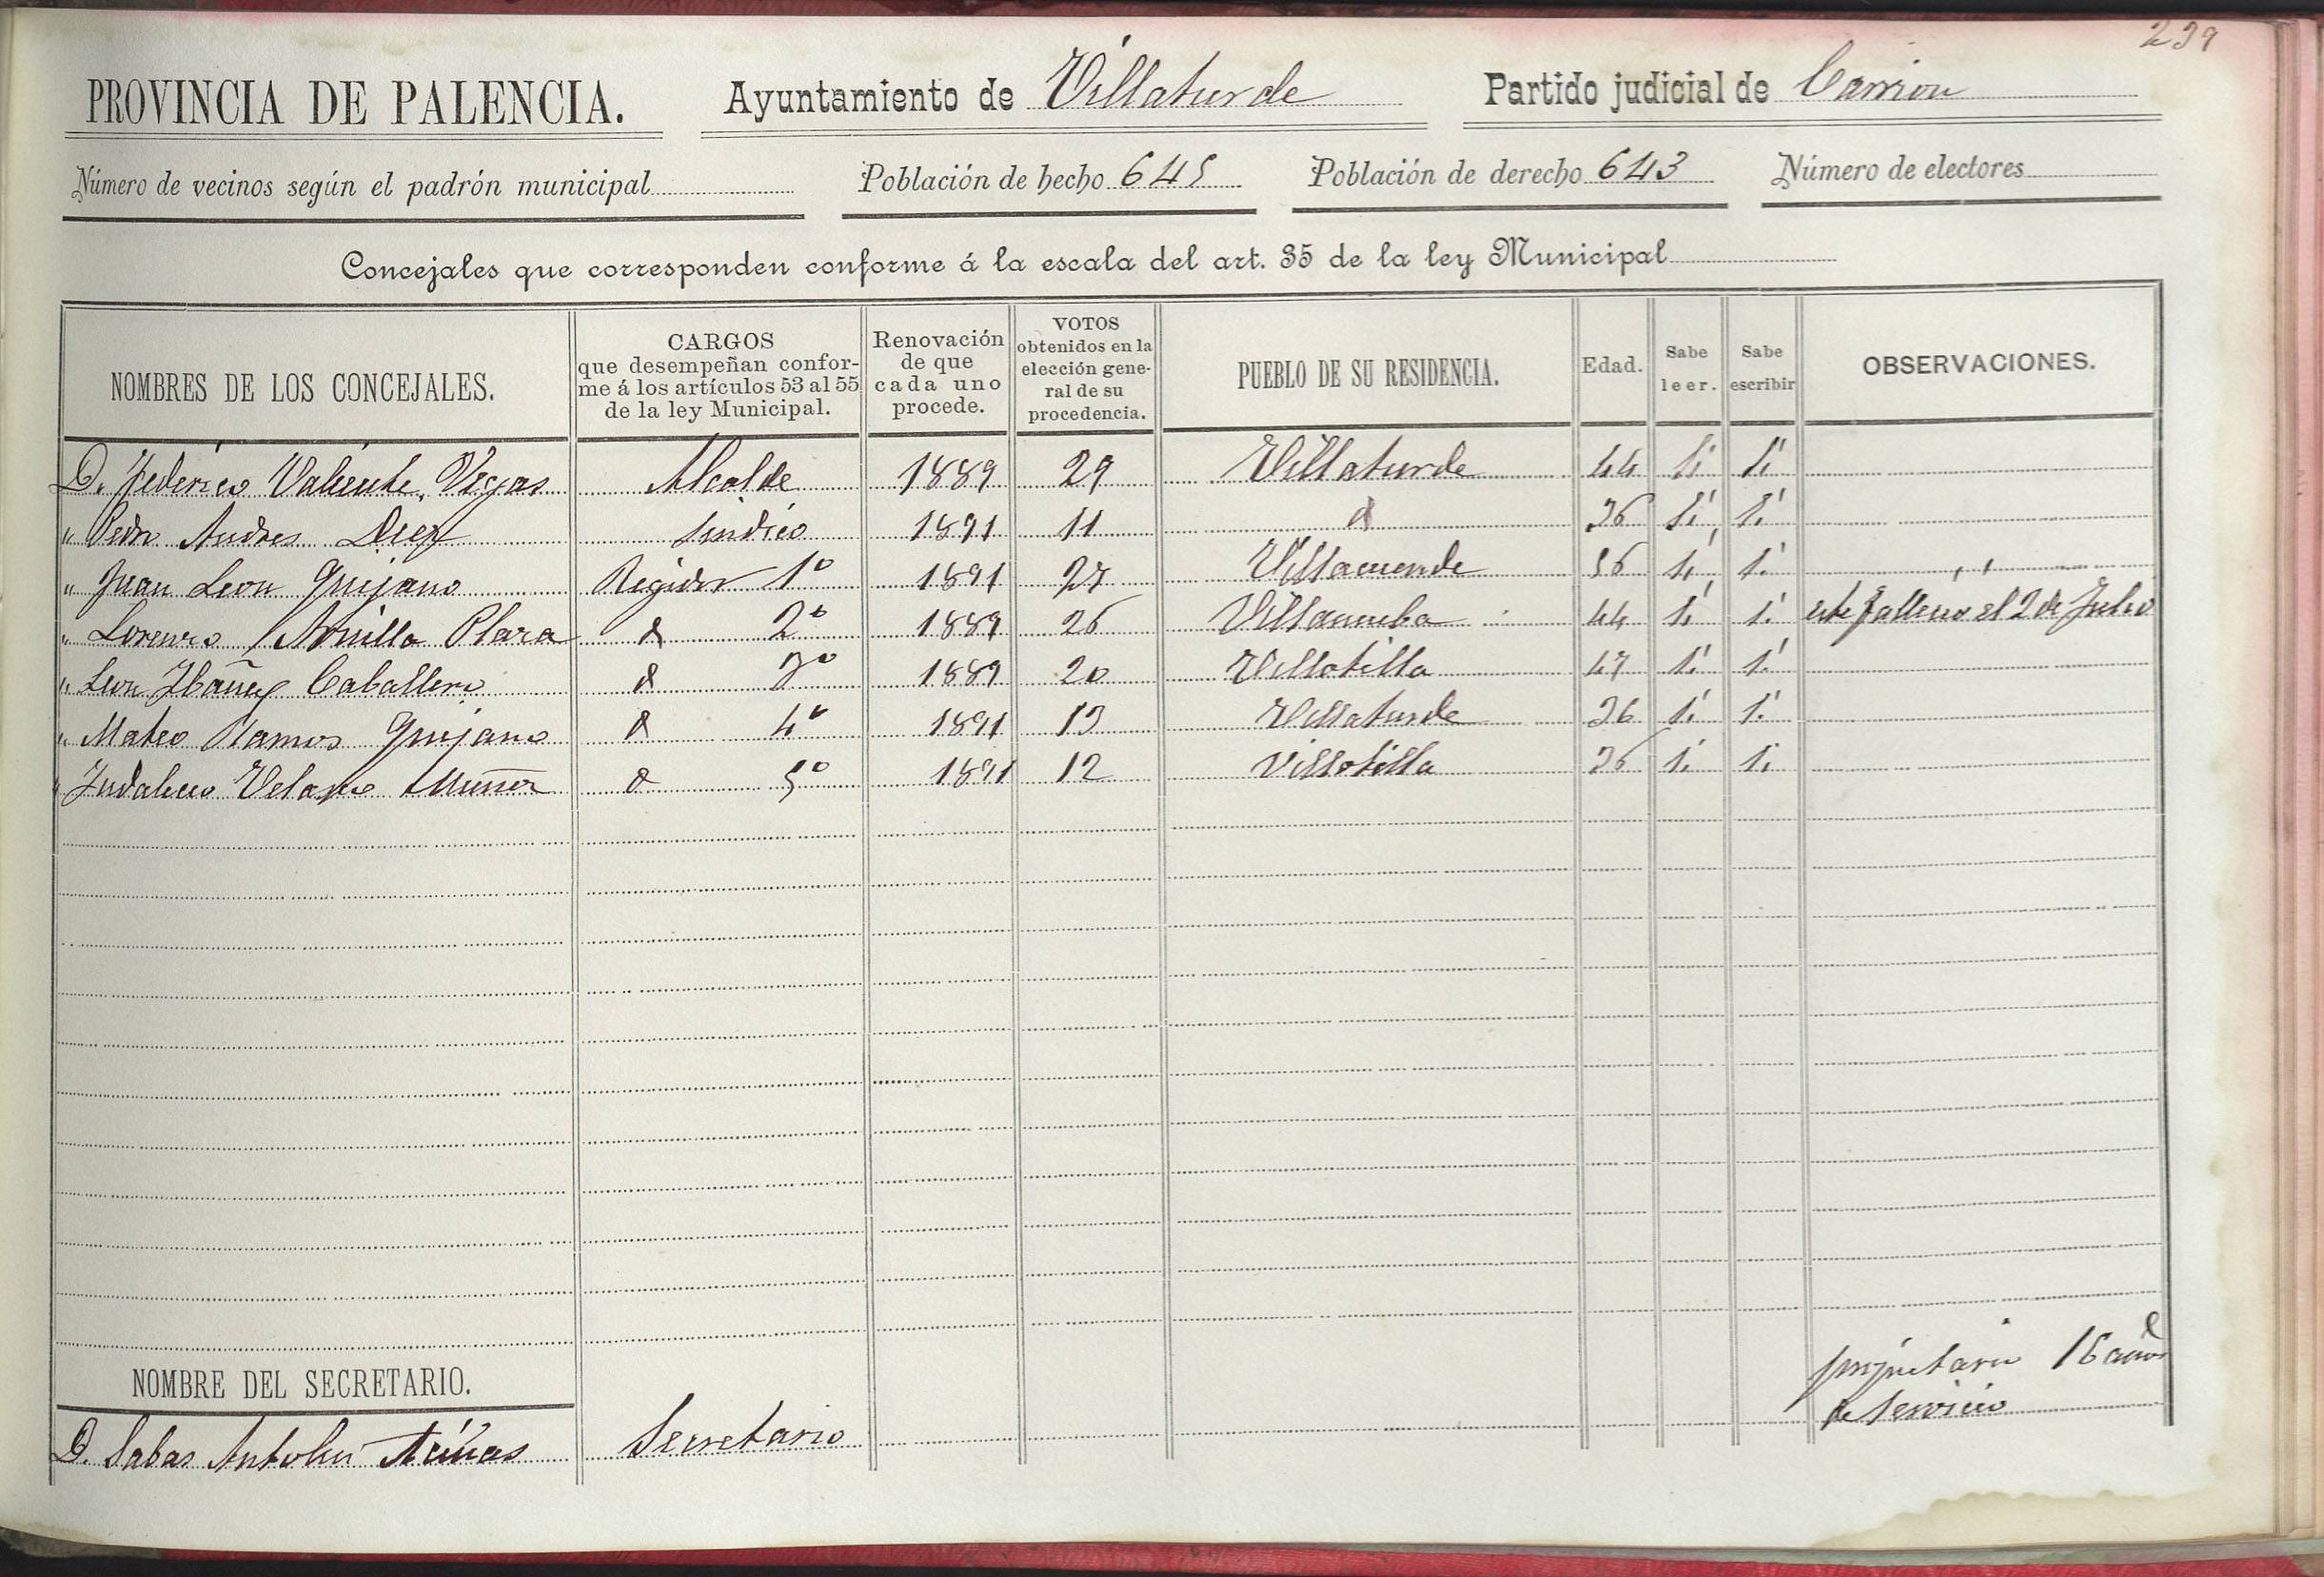 239
PROVINCIA DE PALENCIA. Ayuntamiento de Villaturde Partido judicial de Carrion
Número de vecinos según el padrón municipal Población de hecho 645 Población de derecho 643 Número de electores
Concejales que corresponden conforme á la escala del art. 35 de la ley Municipal
NOMBRES DE LOS CONCEJALES. CARGOS que desempeñan conforme á los artículos 53 al 55 de la ley Municipal. Renovación de que cada uno procede. VOTOS obtenidos en la elección general de su procedencia. PUEBLO DE SU RESIDENCIA. Edad. Sabe leer. Sabe escribir OBSERVACIONES.
D. Federico Valiente Vegas Alcalde 1889 29 Villaturde 44 Si Si
" Pedro Andres Diez Sindico 1891 11 d 36 Si Si
" Juan Leon Quijano Regidor 1º 1891 27 Villacuende 56 Si Si
" Lorenzo Plaza d 2º 1889 26 Villanueba 44 Si Si este fallecio el 2 de Julio
" Leon Ibañez Caballero d 3º 1889 20 Villotilla 47 Si Si
" Mateo Ramos Quijano d 4º 1891 13 Villaturde 36 Si Si
" Indalecio Velasco Muñoz d 5º 1891 12 Villotilla 36 Si Si
NOMBRE DEL SECRETARIO.
D. Sabas Antolin Secretario propietario 16 años
de Servicio